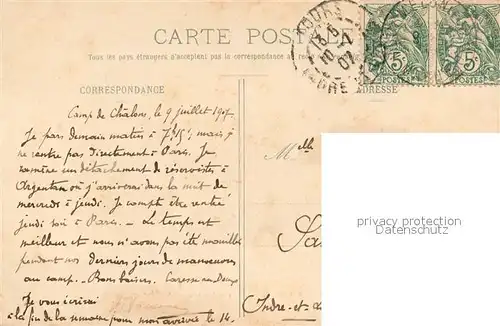 CARTE POSTALE
Tous les pays étrangers n'acceptent pas la correspondance au recto
CORRESPONDANCE
ADRESSE
TOURS
13-5
10-7
07
INDRE
5
POSTES
5
Camp de Châlons, le 9 juillet 1907
Je pars demain matin à 7h15', mais je
ne rentre pas directement à Paris. Je
ramène un détachement de réservistes à
Argentan où j'arriverai dans la nuit de
mercredi à jeudi. Je compte être rentré
jeudi soir à Paris — Le temps est
meilleur et nous n'avons pas été mouillés
pendant nos derniers jours de manoeuvres
au camp. — Bons baisers. Caresse aux Deux
Je vous écrirai
à la fin de la semaine pour mon arrivée le 14.
Melle
Indre-et-
privacy protection
Privatsphärenschutz